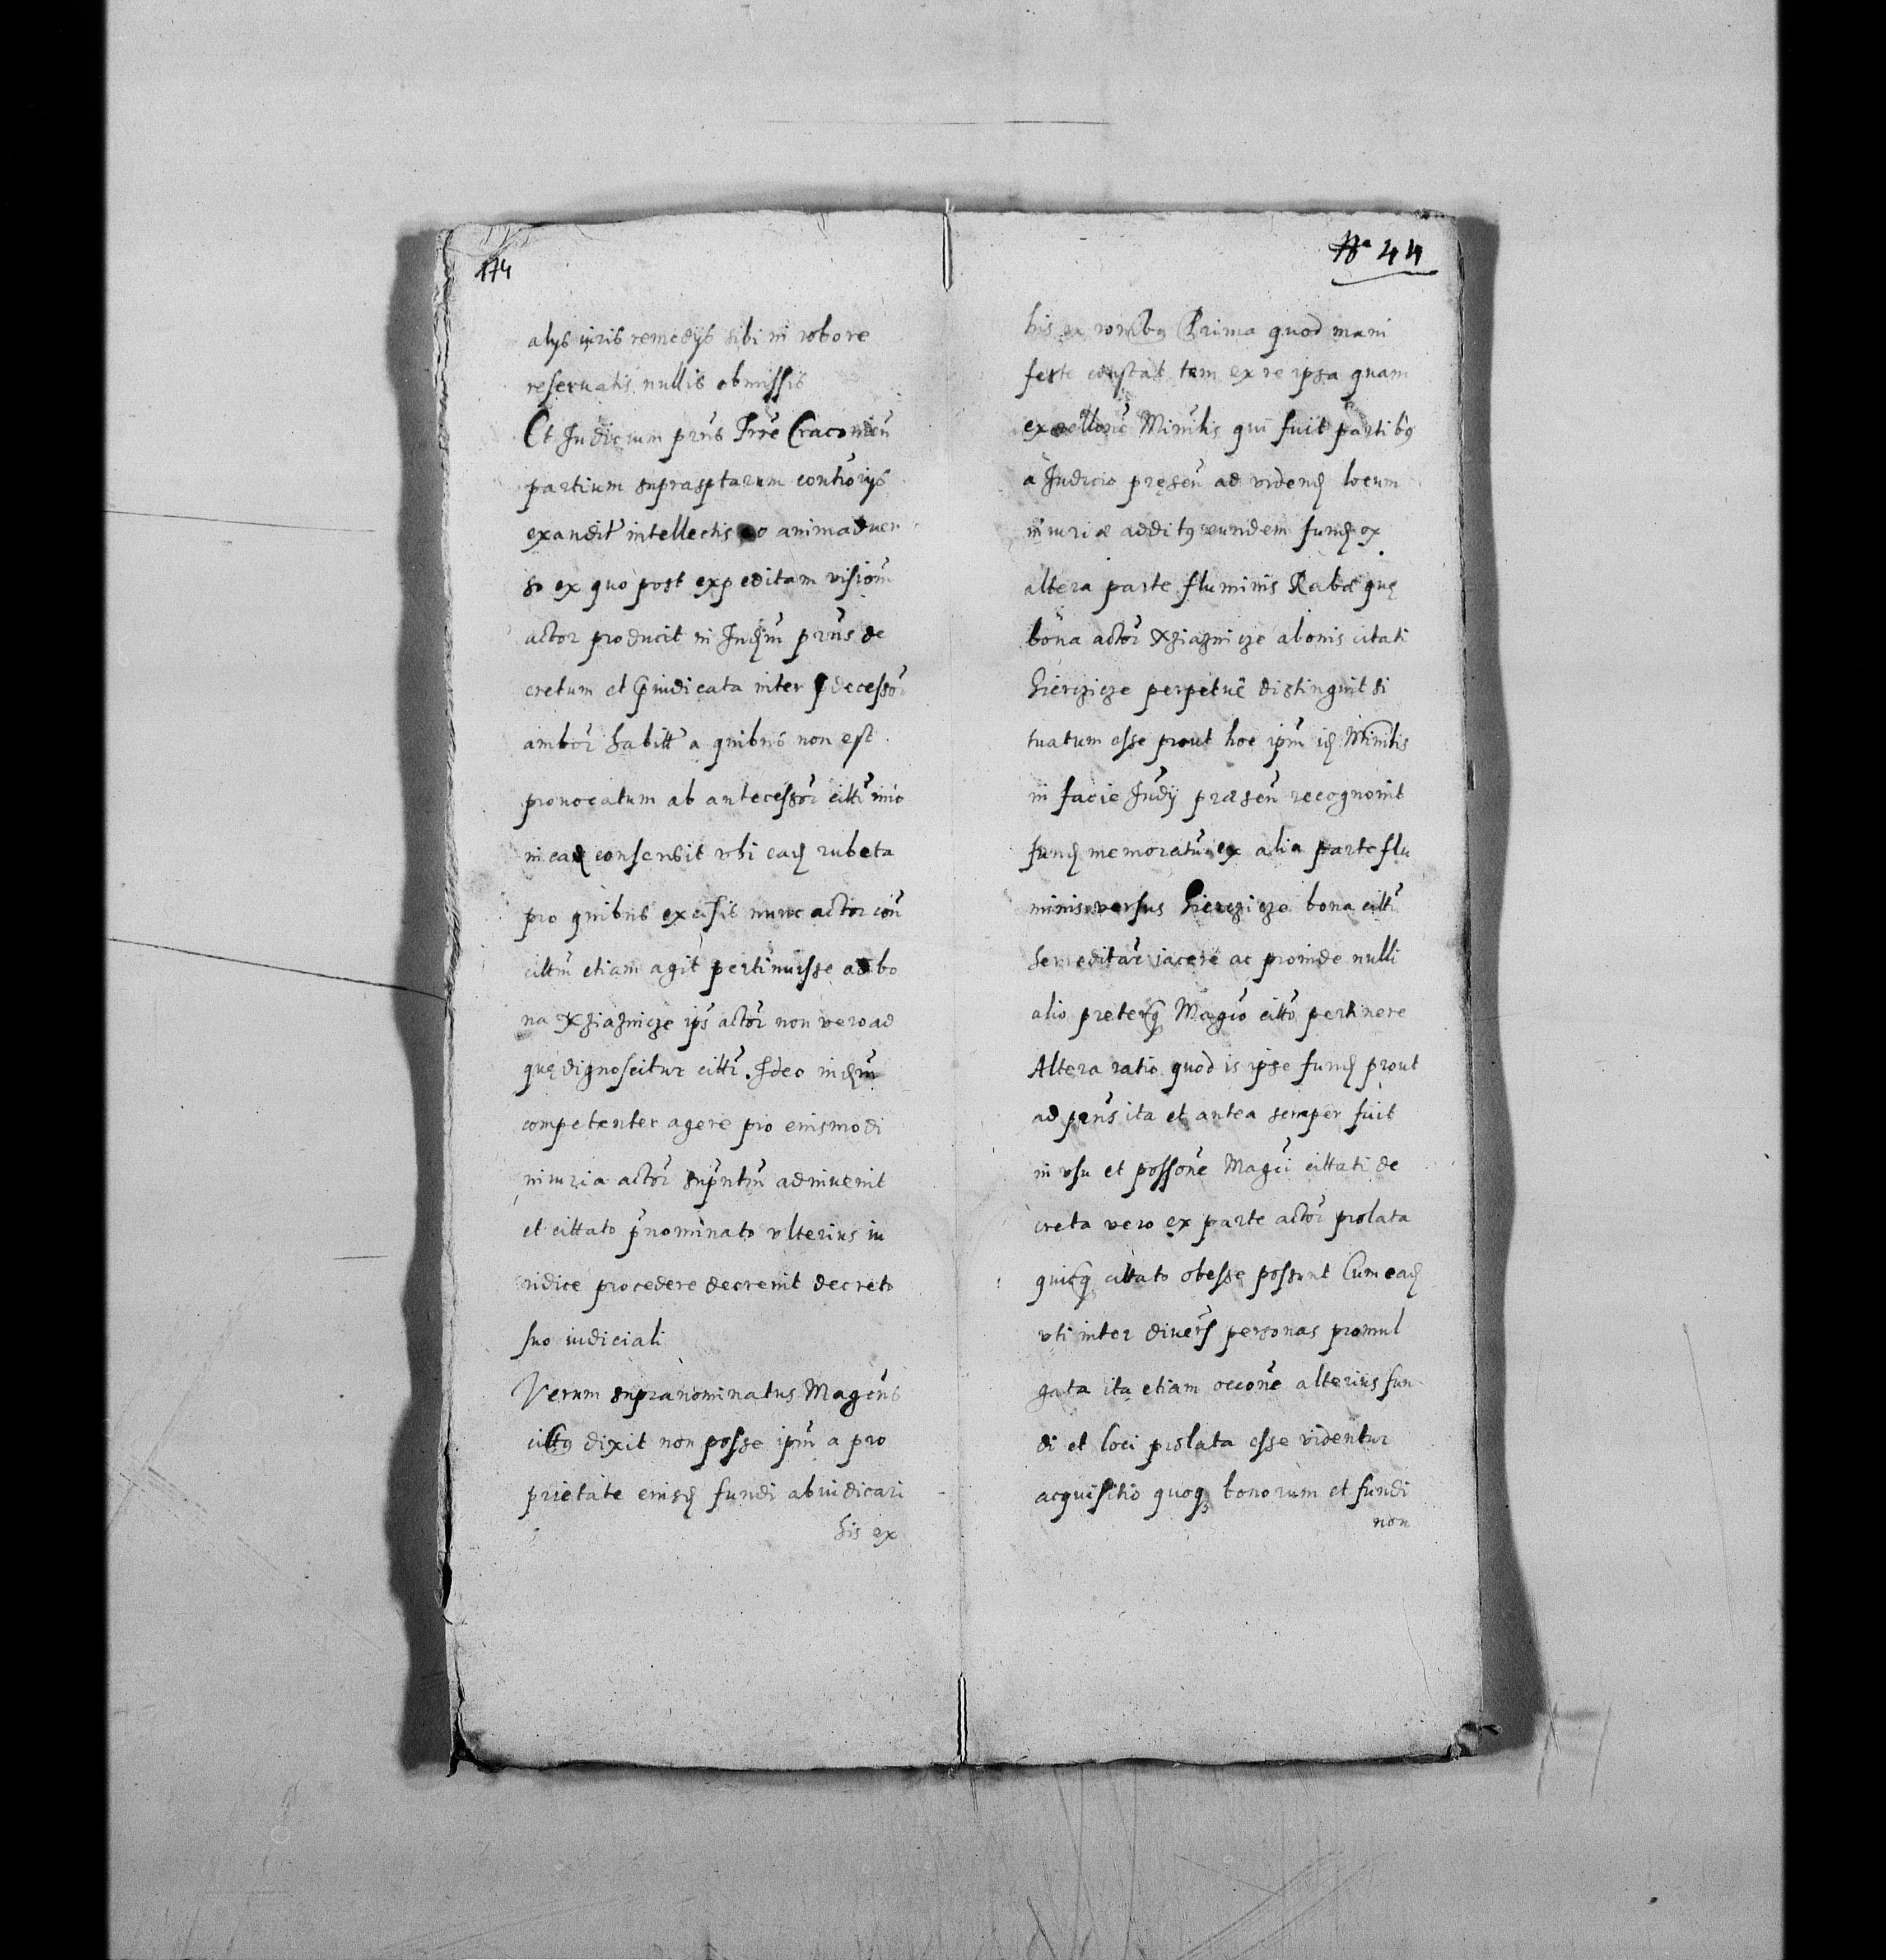 174
alys iuris remedys sibi in robore
reseruatis nullis obmissis
Et Judicium prns Trre Cracouien
partium suprasptarum contiorys
exandit intellectis eo animaduer
so ex quo post expeditam visiom
actor producit in Judm prns de
cretum et priudicata inter decesso
ambor habitt a quibus non est
prouocatum ab antecessor citti imo
in ead consensit vbi ead rubeta
pro quibus excisis nunc actor con
cittm etiam agit pertinuisse ad bo
na Xziaznicze ips actor non vero ad
quę dignoscitur citti. Ideo
competenter agere pro eiusmodi
iniuria actor adinuenit
et cittato pnominato vlterius iu
ridice procedere decreuit decreto
suo iudiciali
Verum supranominatus Magcus
cittq dixit non posse ipm a pro
prietate eiusd fundi abiudicari
his ex
No 44
his ex Prima quod mani
feste constat tam ex re ipsa quam
ex Minilis qui fuit partibq
a Judicio pręsen ad vidend locum
iniuriæ additq eundem fund ex
altera parte fluminis Rabæ quę
bona actor Xziaznicze a bonis citati
Gierczicze perpetue distinguit si
tuatum esse prout hoc ipm id Minilis
in facie Judy præsen recognouit
fund memoratu ex alia parte flu
minis versus Gierczicze bona citti
hereditar iacere ac proinde nulli
alio preterq Magco citto pertinere
Altera ratio quod is ipse fund prout
ad prns ita et antea semper fuit
in vsu et possone Magci cittati de
creta vero ex parte actor prolata
quicq cittato obesse possunt Cum ead
vti inter diuers personas promul
gata ita etiam occone alterius fun
di et loci prolata esse videntur
acquisitio quoq bonorum et fundi
non